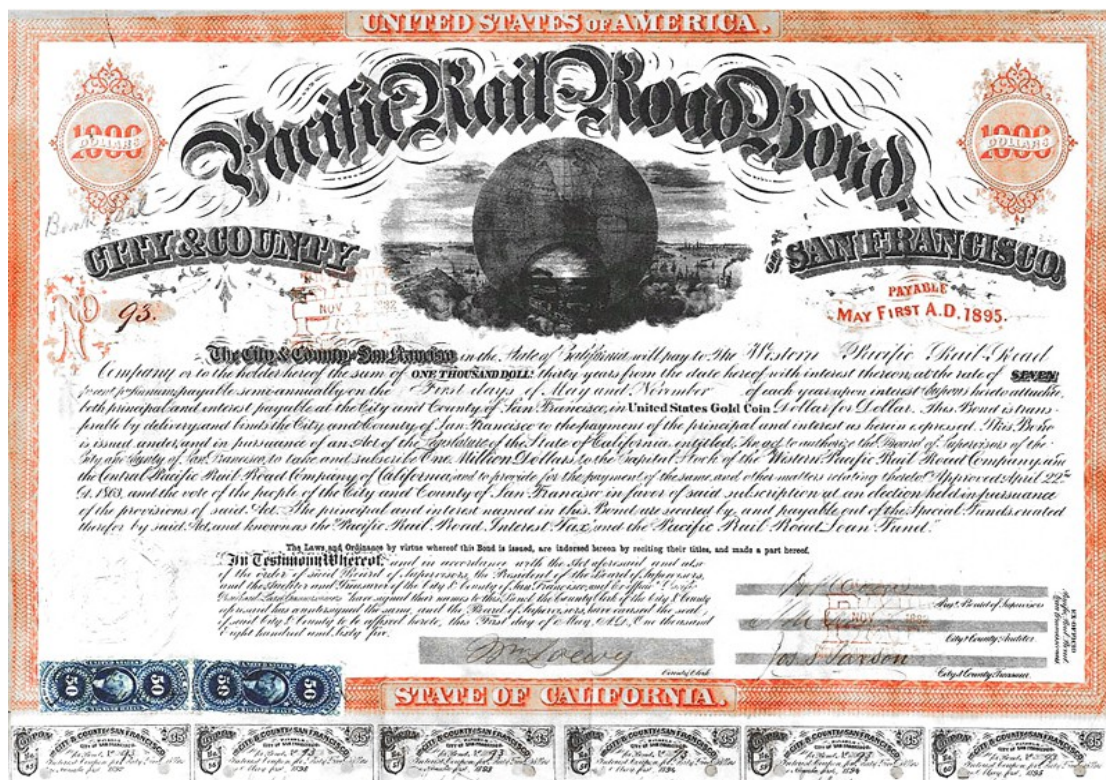 UNITED STATES OF AMERICA.
Pacific Rail-Road Bond,
1000
DOLLARS
1000
DOLLARS
CITY & COUNTY
OF SAN FRANCISCO.
No 93.
NOV 2
PAYABLE
MAY FIRST A.D. 1895.
The City & County of San Francisco in the State of California will pay to The Western Pacific Rail-Road
Company or to the holder hereof the sum of ONE THOUSAND DOLL: thirty years from the date hereof with interest thereon, at the rate of SEVEN
per cent per annum, payable semi annually on the First days of May and November of each year upon interest Coupons hereto attached
both principal and interest payable at the City and County of San Francisco, in United States Gold Coin Dollar for Dollar. This Bond is trans-
ferable by delivery and binds the City and County of San Francisco to the payment of the principal and interest as herein expressed. This Bond
is issued under, and in pursuance of an Act of the Legislature of the State of California entitled, "An act to authorize the Board of Supervisors of the
City and County of San Francisco, to take and subscribe One Million Dollars to the Capital Stock of the Western Pacific Rail Road Company, and
the Central Pacific Rail Road Company of California, and to provide for the payment of the same, and other matters relating thereto" Approved April 22nd
1863, and the vote of the people of the City and County of San Francisco in favor of said subscription at an election held in pursuance
of the provisions of said Act. The principal and interest named in this Bond are secured by and payable out of the Special Funds created
therefor by said Act, and known as the "Pacific Rail Road Interest Tax" and the "Pacific Rail Road Loan Fund."
The Laws and Ordinance by virtue whereof this Bond is issued, are indorsed hereon by reciting their titles, and made a part hereof.
In Testimony Whereof, and in accordance with the Act aforesaid and also
of the order of said Board of Supervisors, the President of the Board of Supervisors,
and the Auditor and Treasurer of the City & County of San Francisco, and Ex officio
have signed their names to this Bond, the County Clerk of the City & County
aforesaid has countersigned the same, and the Board of Supervisors, have caused the seal
of said City & County to be affixed hereto, this First day of May, A.D. One thousand
Eight hundred and Sixty five.
Pres't Board of Supervisors
NOV
City & County Auditor
City & County Treasurer
EX OFFICIO
Wm Loewy
County Clerk
50 50
50 50
STATE OF CALIFORNIA.
COUPON CITY & COUNTY OF SAN FRANCISCO $35
COUPON CITY & COUNTY OF SAN FRANCISCO $35
COUPON CITY & COUNTY OF SAN FRANCISCO $35
COUPON CITY & COUNTY OF SAN FRANCISCO $35
COUPON CITY & COUNTY OF SAN FRANCISCO $35
COUPON CITY & COUNTY OF SAN FRANCISCO $35